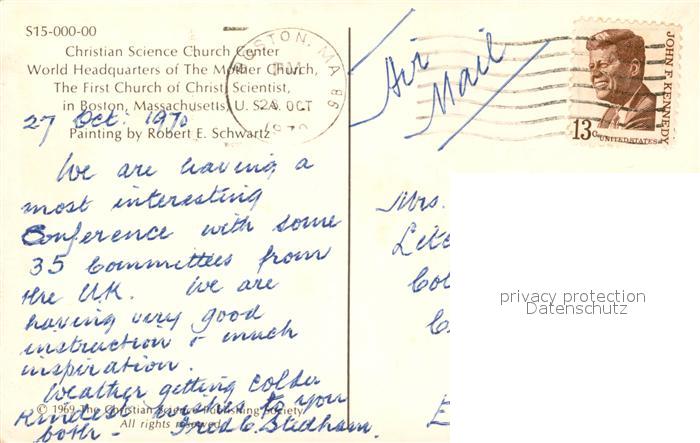 S15-000-00
Christian Science Church Center
World Headquarters of The Mother Church,
The First Church of Christ, Scientist,
in Boston, Massachusetts, U.S.A.
27 Oct. 1970
Painting by Robert E. Schwartz
We are having a
most interesting
Conference with some
35 Committees from
the U.K. We are
having very good
instruction & much
inspiration.
Weather getting colder
Kindest wishes to you
both - Fred C. Stedham.
© 1969 The Christian Science Publishing Society
All rights reserved
BOSTON, MA
PM
OCT
1970
Air
Mail
JOHN F. KENNEDY
13c
UNITED STATES
Mrs.
privacy protection
Datenschutz